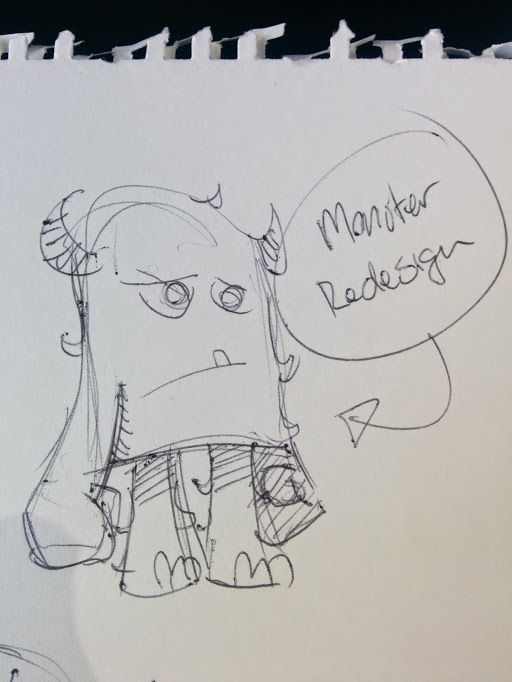 Monster
Redesign